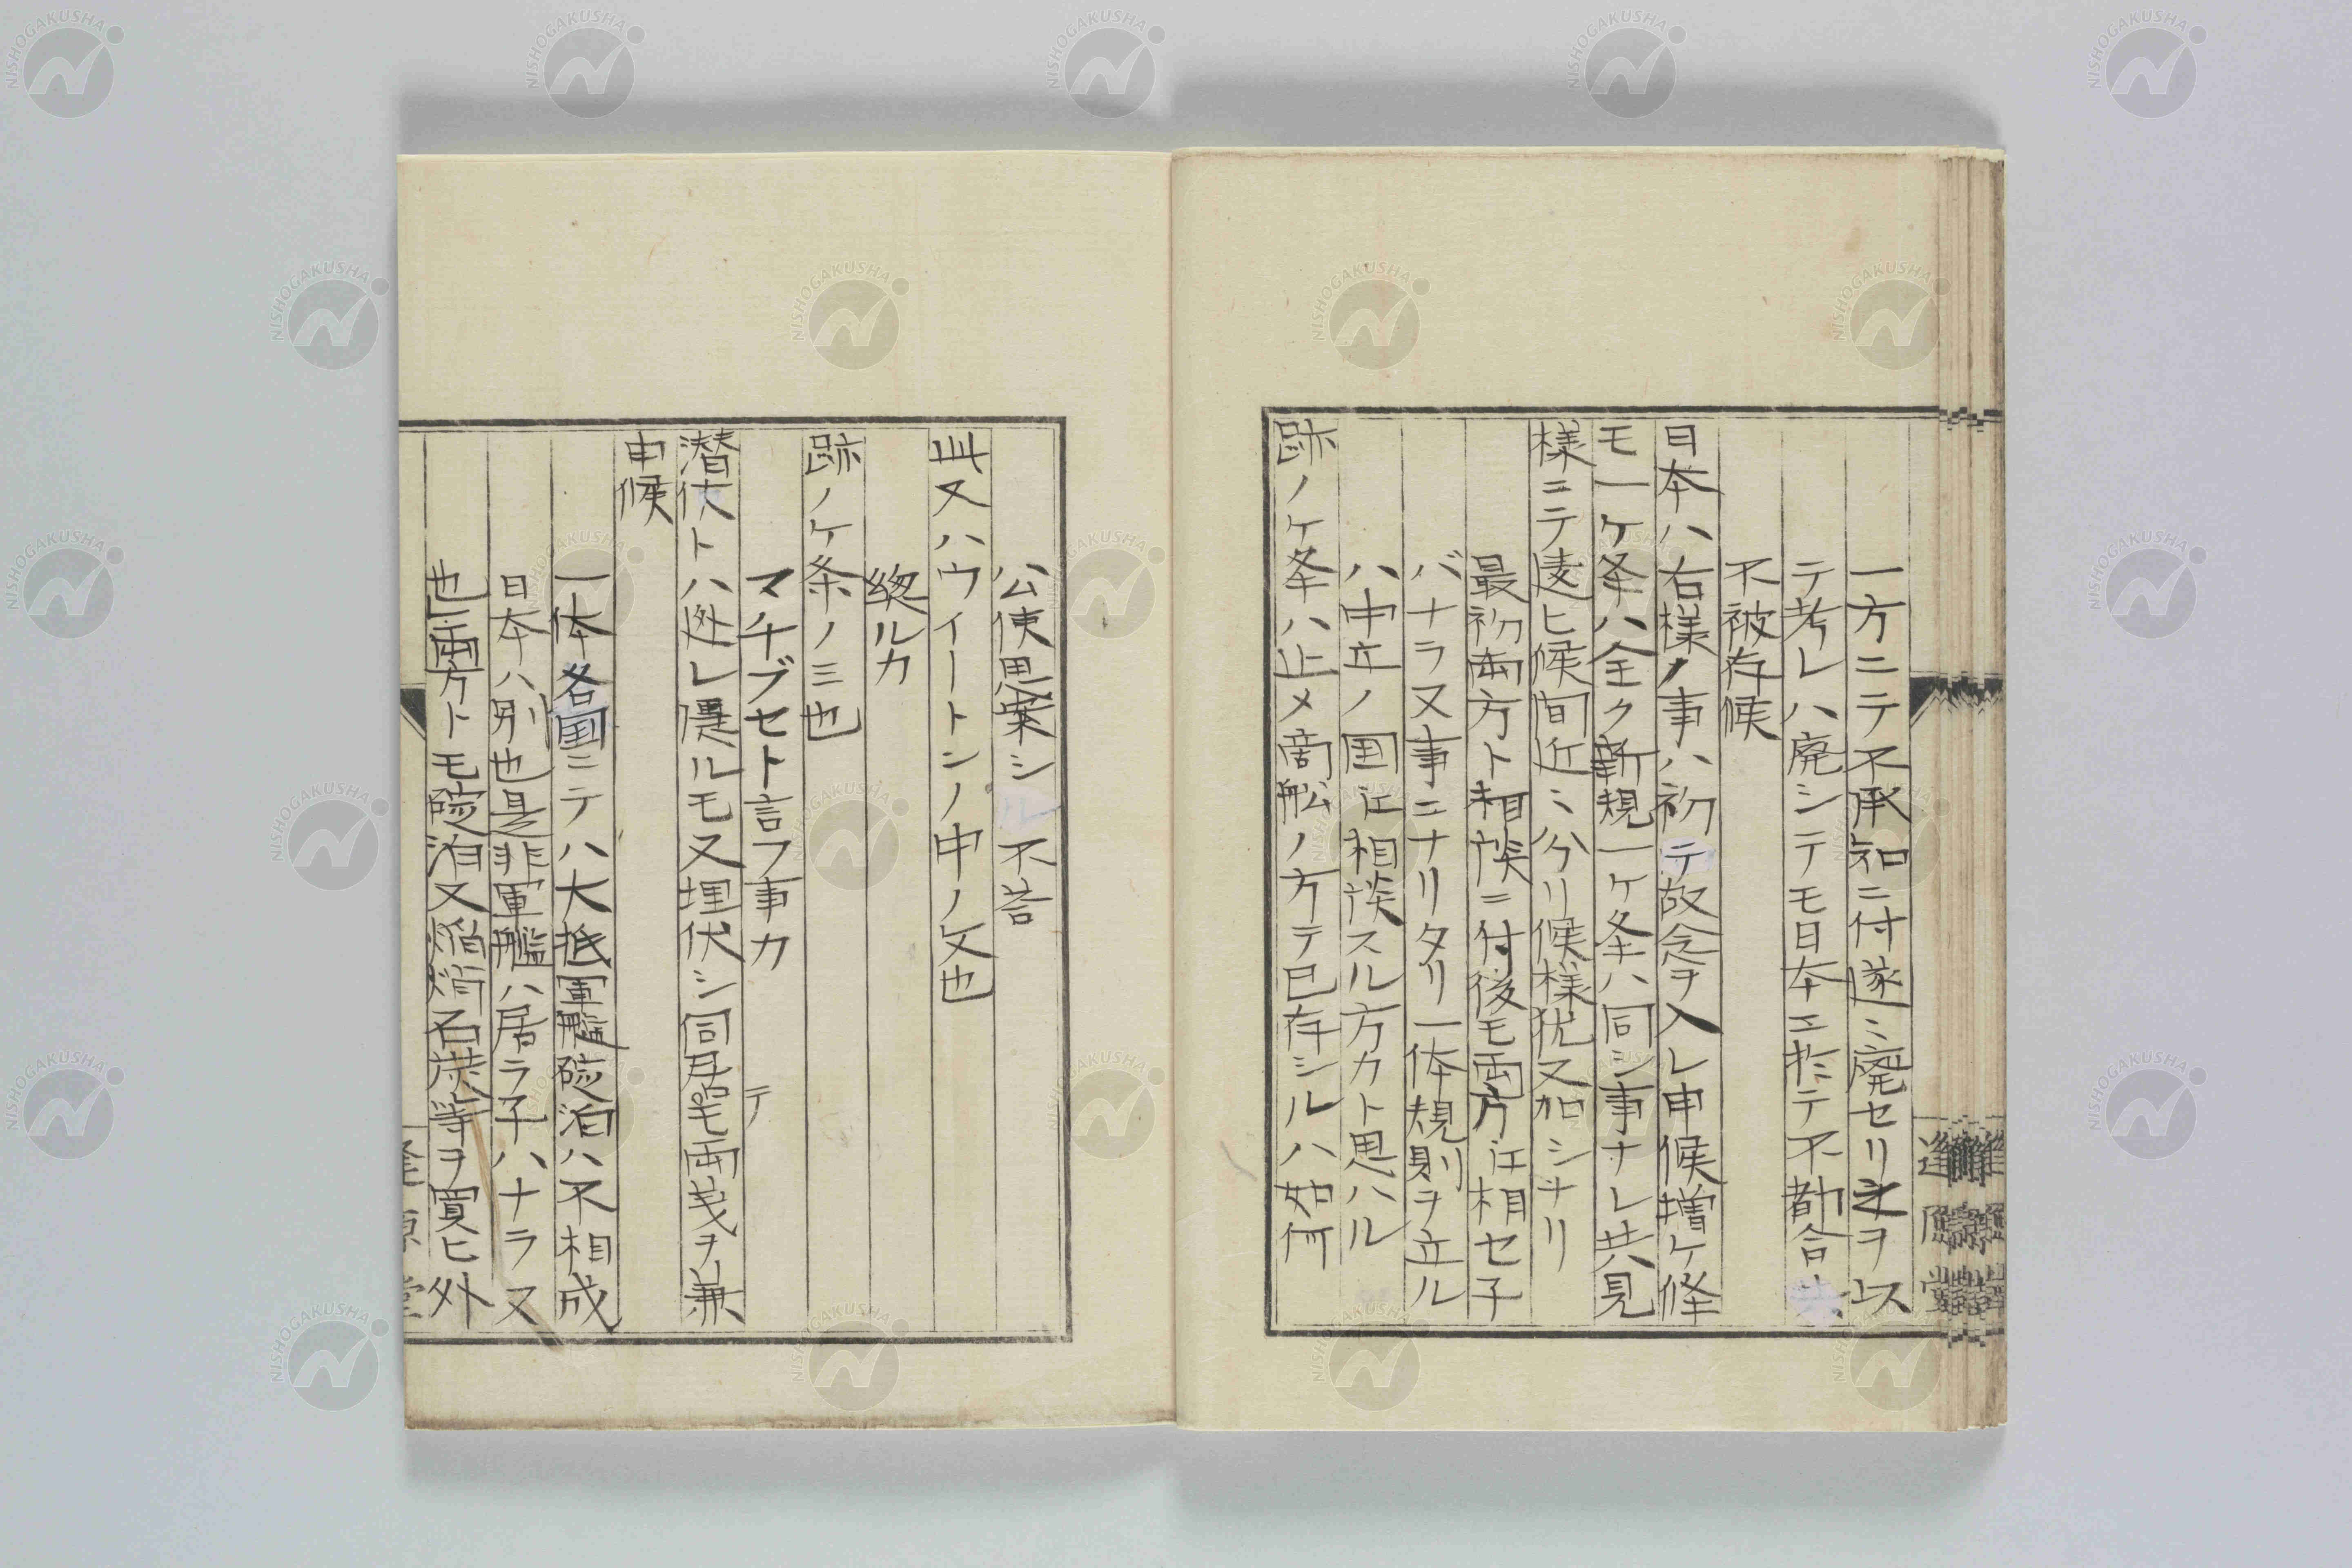 一方ニテ不承知ニ付遂ニ廃セリ之ヲ以
テ考レハ廃シテモ日本エ於テ不都合共
不被存候
日本ハ右様ノ事ハ初テ故念ヲ入レ申候増ケ條
モ一ケ条ハ全ク新規一ケ条ハ同シ事ナレ共見
様ニテ違ヒ候間近ニ分リ候様犹又加シナリ
最初両方ト相談ニ付後モ両方江相セ子
バナラ又事ニナリタリ一体規則ヲ立ル
ハ中立ノ国江相談スル方カト思ハル
跡ノケ条ハ止メ商船ノ方テ已存シルハ如何
公使思案シ不答
此又ハウイートシノ中ノ文也
緫ルカ
跡ノケ条ノミ也
マチブセト言フ事カ
テ
潜伏トハ迯レ隱ルモ又埋伏シ同居モ両義ヲ兼
申候
一体各国ニテハ大抵軍艦碇泊ハ不相成
日本ハ別也是非軍艦ハ居ラ子ハナラヌ
也両方トモ碇泊又焔焇石炭等ヲ買ヒ外
NISHOGAKUSHA